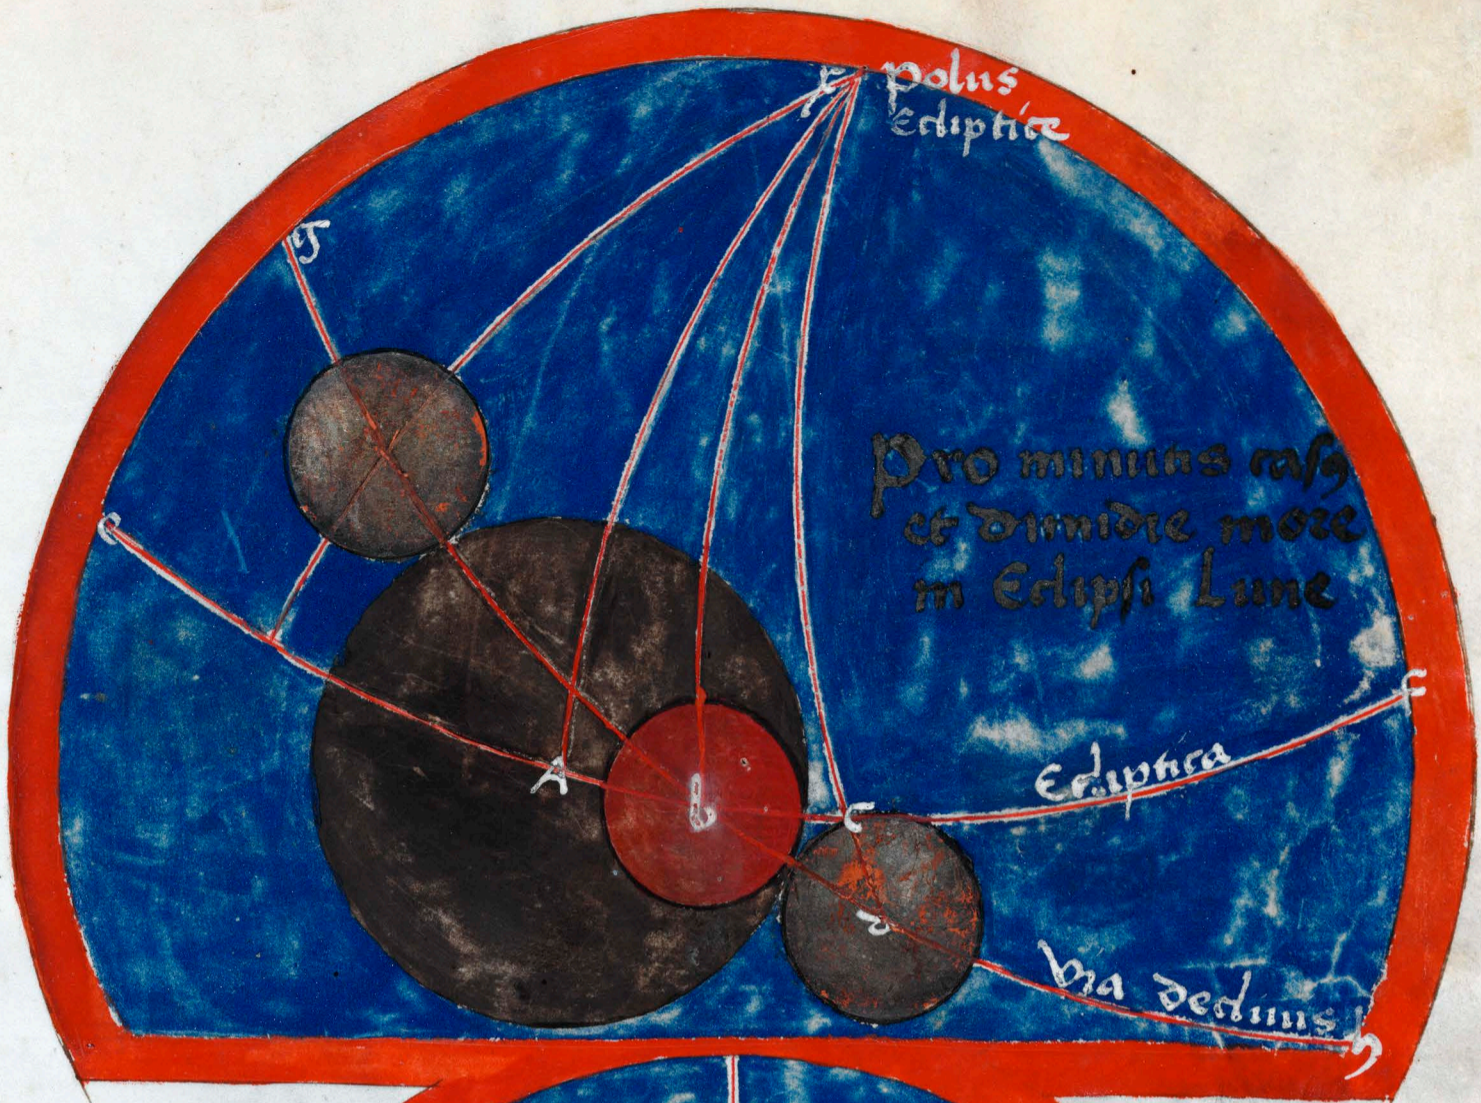 K polus
Ecliptice
g
e
Pro minutis casus
et dimidie more
in Eclipsi Lune
f
Ecliptica
A
b
c
d
Via declivis
h